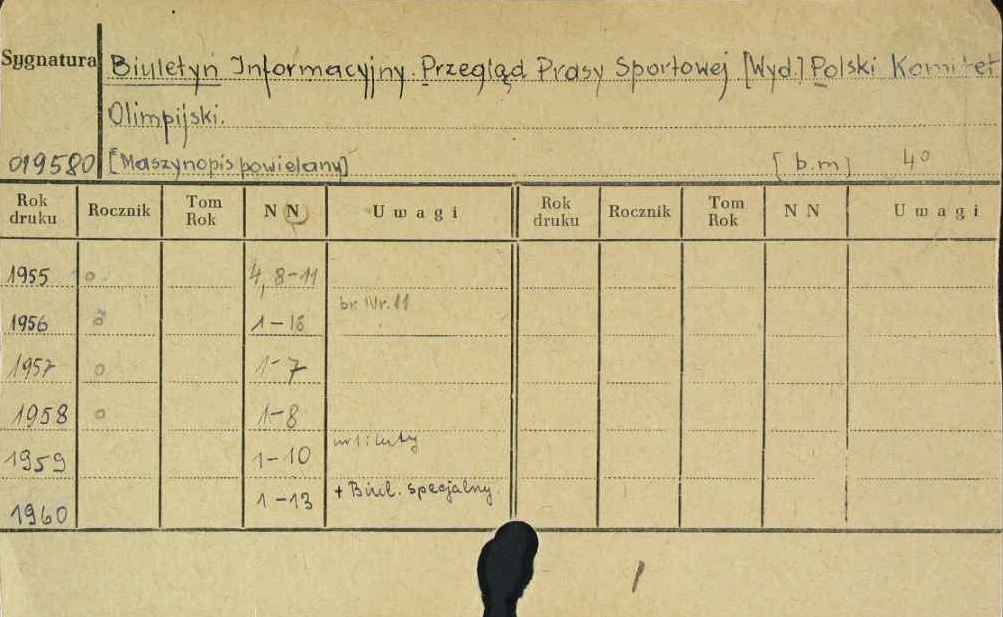 Sygnatura Biuletyn Informacyjny. Przegląd Prasy Sportowej [Wyd.] Polski Komitet
Olimpijski.
019580 [Maszynopis powielany] [b.m] 4°
Rok druku Rocznik Tom Rok N N U w a g i Rok druku Rocznik Tom Rok N N U w a g i
1955 o 4, 8-11
br. Nr. 11
1956 o 1-18
1957 o 1-7
1958 o 1-8
nr 1: luty
1959 1-10
1960 1-13 + Biul. specjalny